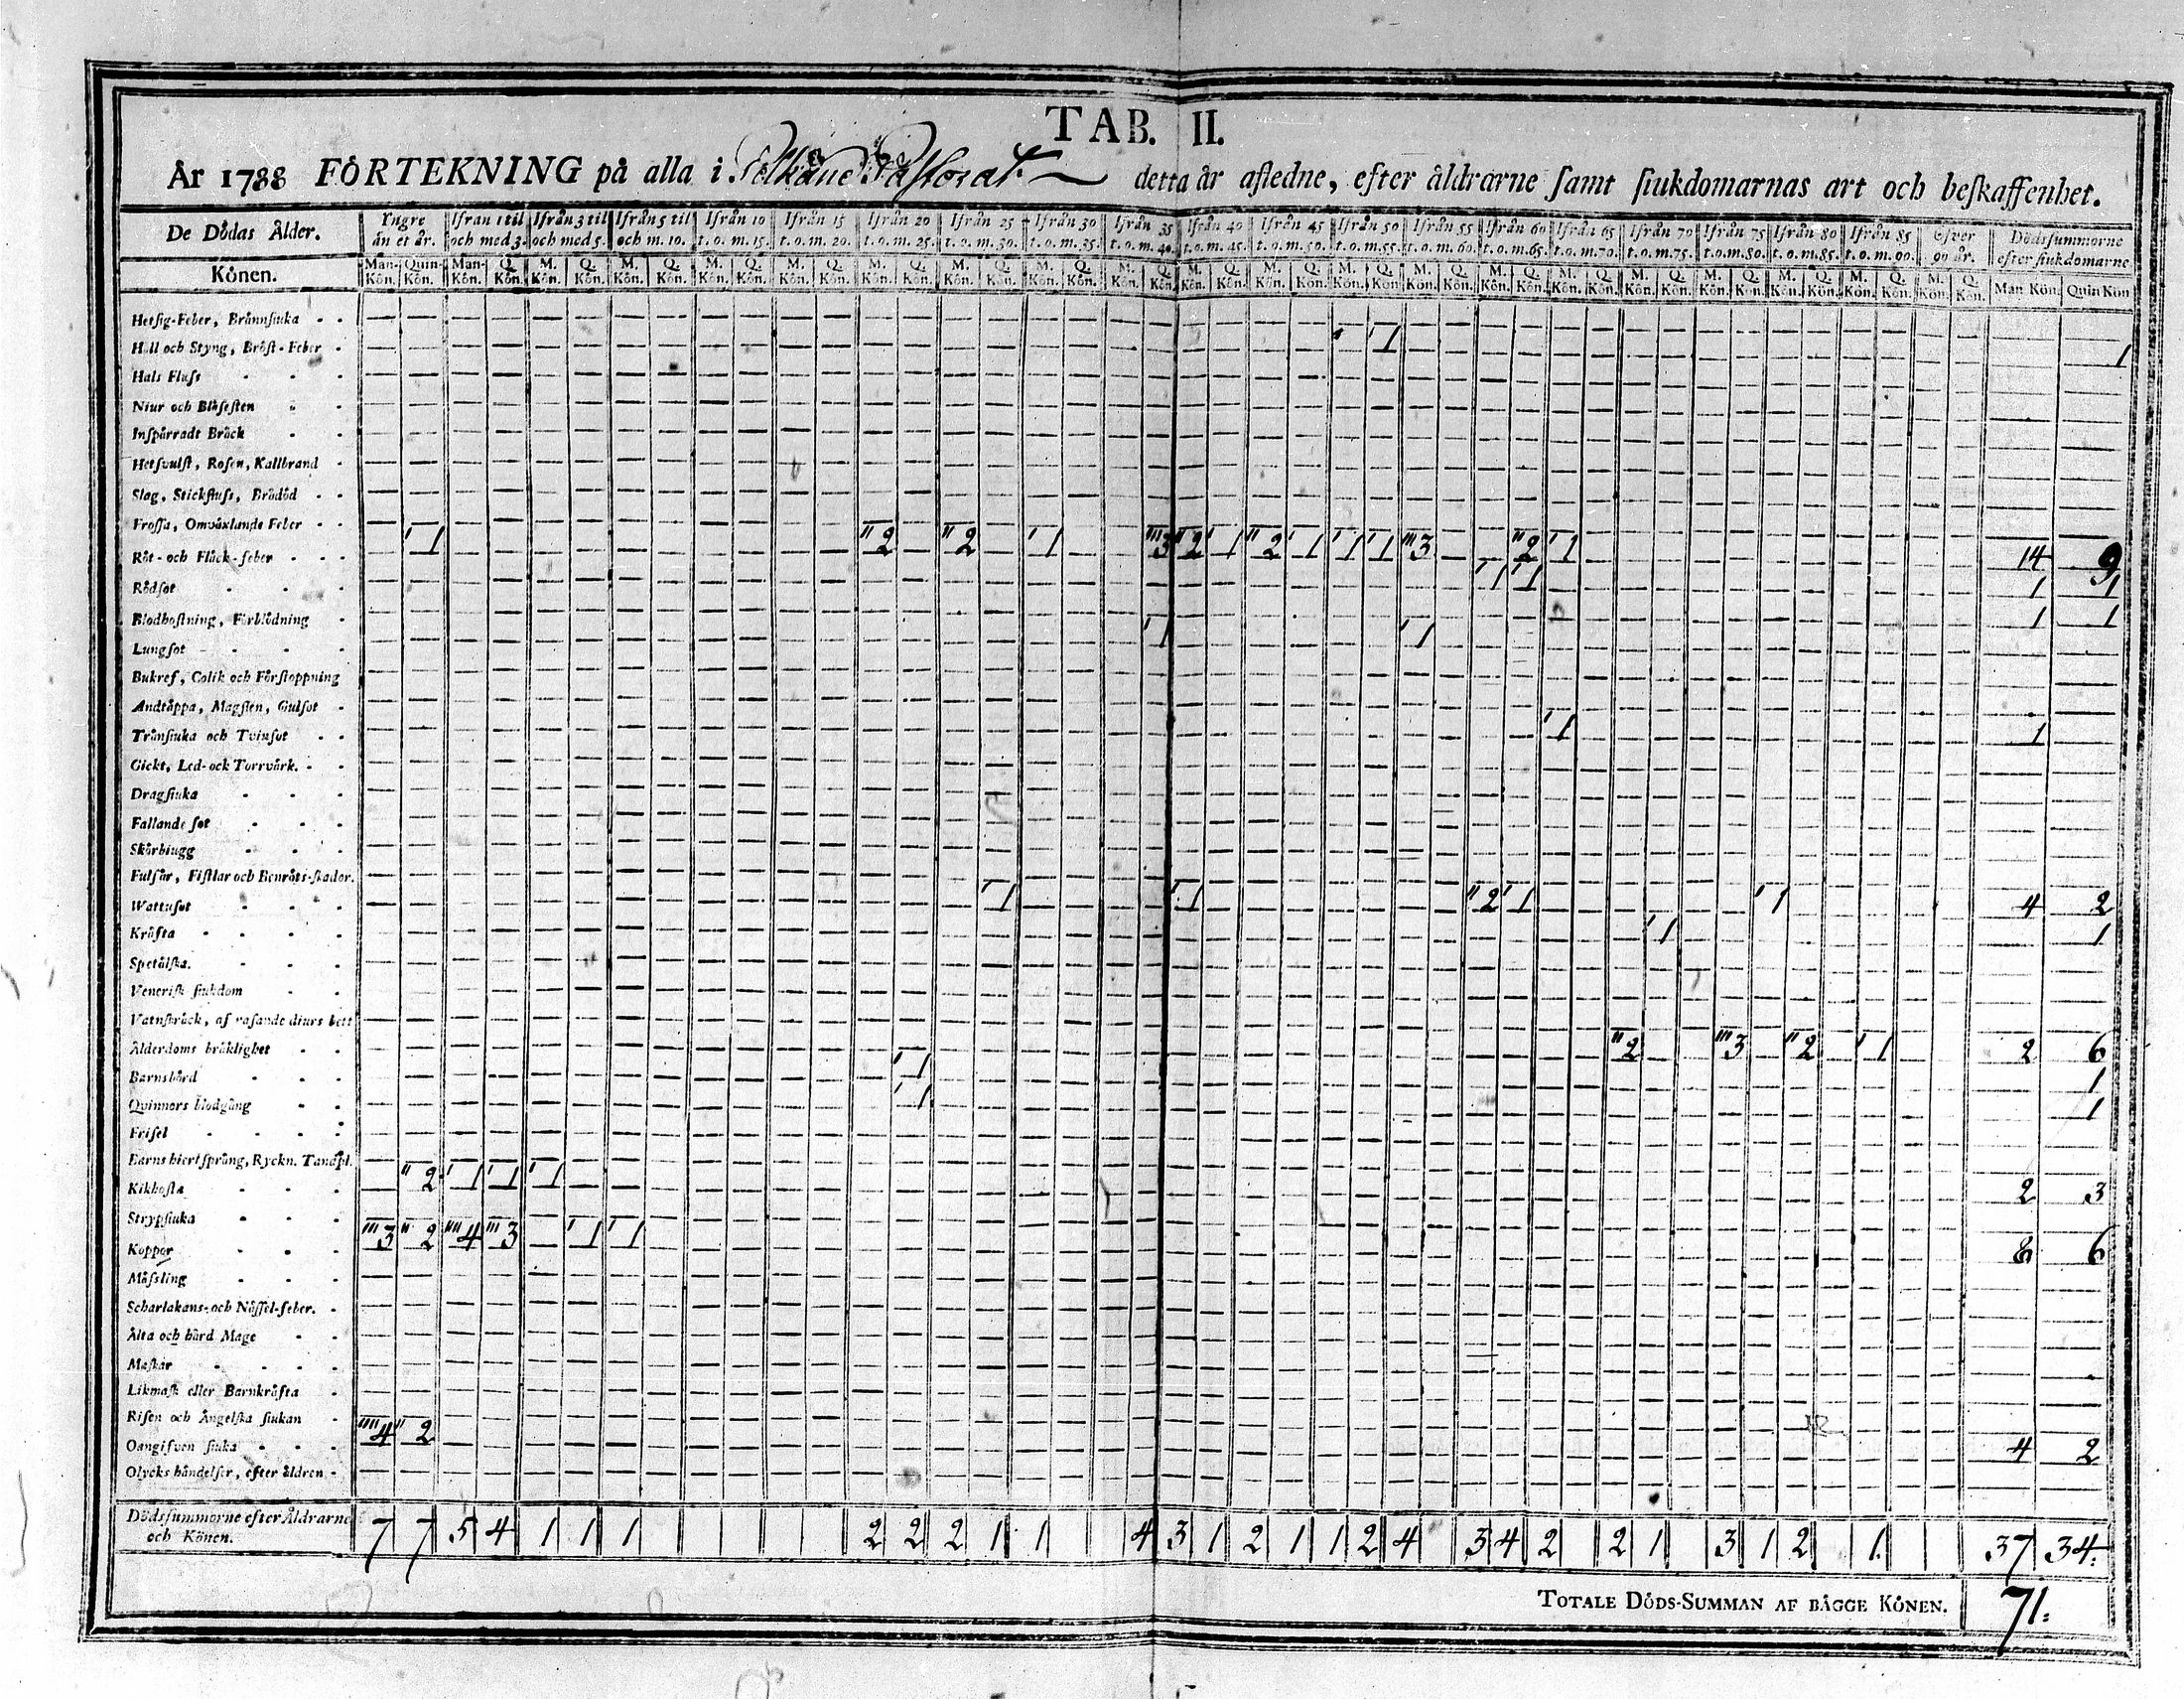 TAB. II.
År 1788 FÖRTEKNING på alla i Pelkäne Pastorat detta år afledne, efter åldrarne samt siukdomarnas art och beskaffenhet.
De Dödas Ålder. Yngre än et år. Ifrån 1 til och med 3. Ifrån 3 til och med 5. Ifrån 5 til och m. 10. Ifrån 10 t.o.m. 15. Ifrån 15 t.o.m. 20. Ifrån 20 t.o.m. 25. Ifrån 25 t.o.m. 30. Ifrån 30 t.o.m. 35. Ifrån 35 t.o.m. 40. Ifrån 40 t.o.m. 45. Ifrån 45 t.o.m. 50. Ifrån 50 t.o.m. 55. Ifrån 55 t.o.m. 60. Ifrån 60 t.o.m. 65. Ifrån 65 t.o.m. 70. Ifrån 70 t.o.m. 75. Ifrån 75 t.o.m. 80. Ifrån 80 t.o.m. 85. Ifrån 85 t.o.m. 90. Öfver 90 år. Dödssummorne efter siukdomarne
Könen. Man-Kön. Quin-Kön. Man-Kön. Q. Kön. M. Kön. Q. Kön. M. Kön. Q. Kön. M. Kön. Q. Kön. M. Kön. Q. Kön. M. Kön. Q. Kön. M. Kön. Q. Kön. M. Kön. Q. Kön. M. Kön. Q. Kön. M. Kön. Q. Kön. M. Kön. Q. Kön. M. Kön. Q. Kön. M. Kön. Q. Kön. M. Kön. Q. Kön. M. Kön. Q. Kön. M. Kön. Q. Kön. M. Kön. Q. Kön. M. Kön. Q. Kön. M. Kön. Q. Kön. M. Kön. Q. Kön. Man Kön. Quin Kön
Hetsig-Feber, Brännsiuka
Håll och Styng, Bröst-Feber 1 1
Hals Fluss
Niur och Blåsesten
Inspärradt Bråck
Hetsvulst, Rosen, Kallbrand
Slag, Stickfluss, Brådöd
Frossa, Omväxlande Feber
Röt- och Fläck-feber 1 2 2 1 3 2 1 2 1 1 1 3 2 1 14 9
Rödsot 1 1 1 1
Blodhostning, Förblödning 1 1 1 1
Lungsot
Bukref, Colik och Förstoppning
Andtäppa, Magsten, Gulsot
Trånsiuka och Tvinsot 1 1
Gickt, Led- ock Torrvärk.
Dragsiuka
Fallande sot
Skörbiugg
Fulsår, Fistlar och Benröts-skador.
Wattusot 1 1 2 1 1 4 2
Kräfta 1 1
Spetälska.
Venerisk siukdom
Vatnskräck, af rasande diurs bett
Ålderdoms bräklighet 2 3 2 1 2 6
Barnsbörd 1 1
Qvinnors blodgång 1 1
Frisel
Barns hiertsprång, Ryckn. Tandpl.
Kikhosta 2 1 1 1 2 3
Strypsiuka
Koppor 3 2 4 3 1 1 8 6
Måssling
Scharlakans- och Nässel-feber.
Älta och hård Mage
Maskar
Likmask eller Barnkräfta
Risen och Ängelska siukan
Oangifven siuka 4 2 4 2
Olycks händelser, efter åldren
Dödssummorne efter Åldrarne och Könen. 7 7 5 4 1 1 1 2 2 2 1 1 4 3 1 2 1 1 2 4 3 4 2 2 1 3 1 2 1. 37 34.
TOTALE DÖDS-SUMMAN AF BÅGGE KÖNEN. 71.